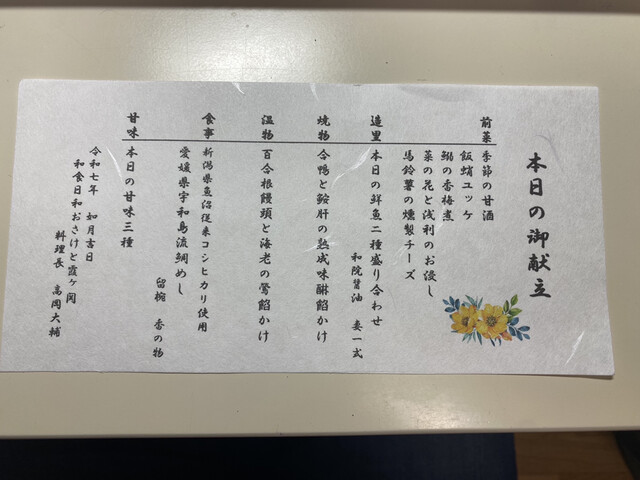 本日の御献立
前菜 季節の甘酒
飯蛸ユッケ
鰯の香梅煮
菜の花と浅利のお浸し
馬鈴薯の燻製チーズ
造里 本日の鮮魚二種盛り合わせ
和院醤油 妻一式
焼物 合鴨と鮟肝の熟成味醂餡かけ
温物 百合根饅頭と海老の鶯餡かけ
食事 新潟県魚沼従来コシヒカリ使用
愛媛県宇和島流鯛めし
留椀 香の物
甘味 本日の甘味三種
令和七年 如月吉日
和食日和おさけと霞ヶ岡
料理長 高岡大輔